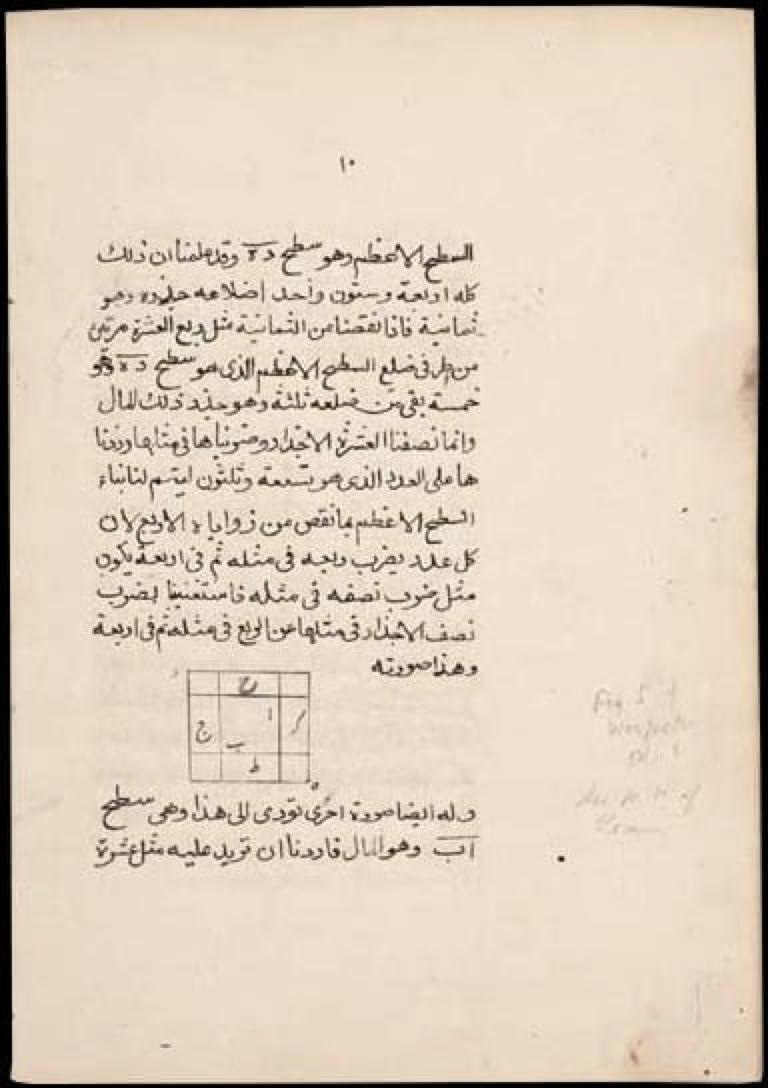 ١٠
السطح الاعظم وهو سطح ده وقد علمنا ان ذلك
كله اربعة وستون واحد اضلاعه جذره وهو
ثمانية فاذا نقصنا من الثمانية مثل ربع العشرة مرتين
من طرفى ضلع السطح الاعظم الذى هو سطح ده وهو
خمسة بقى من ضلعه ثلثة وهو جذر ذلك المال
وانما نصفنا العشرة الاجذار وضربناها فى مثلها وزدنا
ها على العدد الذى هو تسعة وثلثون ليتم لنا بناء
السطح الاعظم بما نقص من زواياه الاربع لان
كل عدد يضرب ربعه فى مثله ثم فى اربعة يكون
مثل ضرب نصفه فى مثله فاستغنينا بضرب
نصف الاجذار فى مثلها عن الربع فى مثله ثم فى اربعة
وهذا صورته
ح
ا
ج
ب
ط
ه
وله ايضا صورة اخرى تؤدى الى هذا وهى سطح
اب وهو المال فاردنا ان نزيد عليه مثل عشرة
Fig 5 of